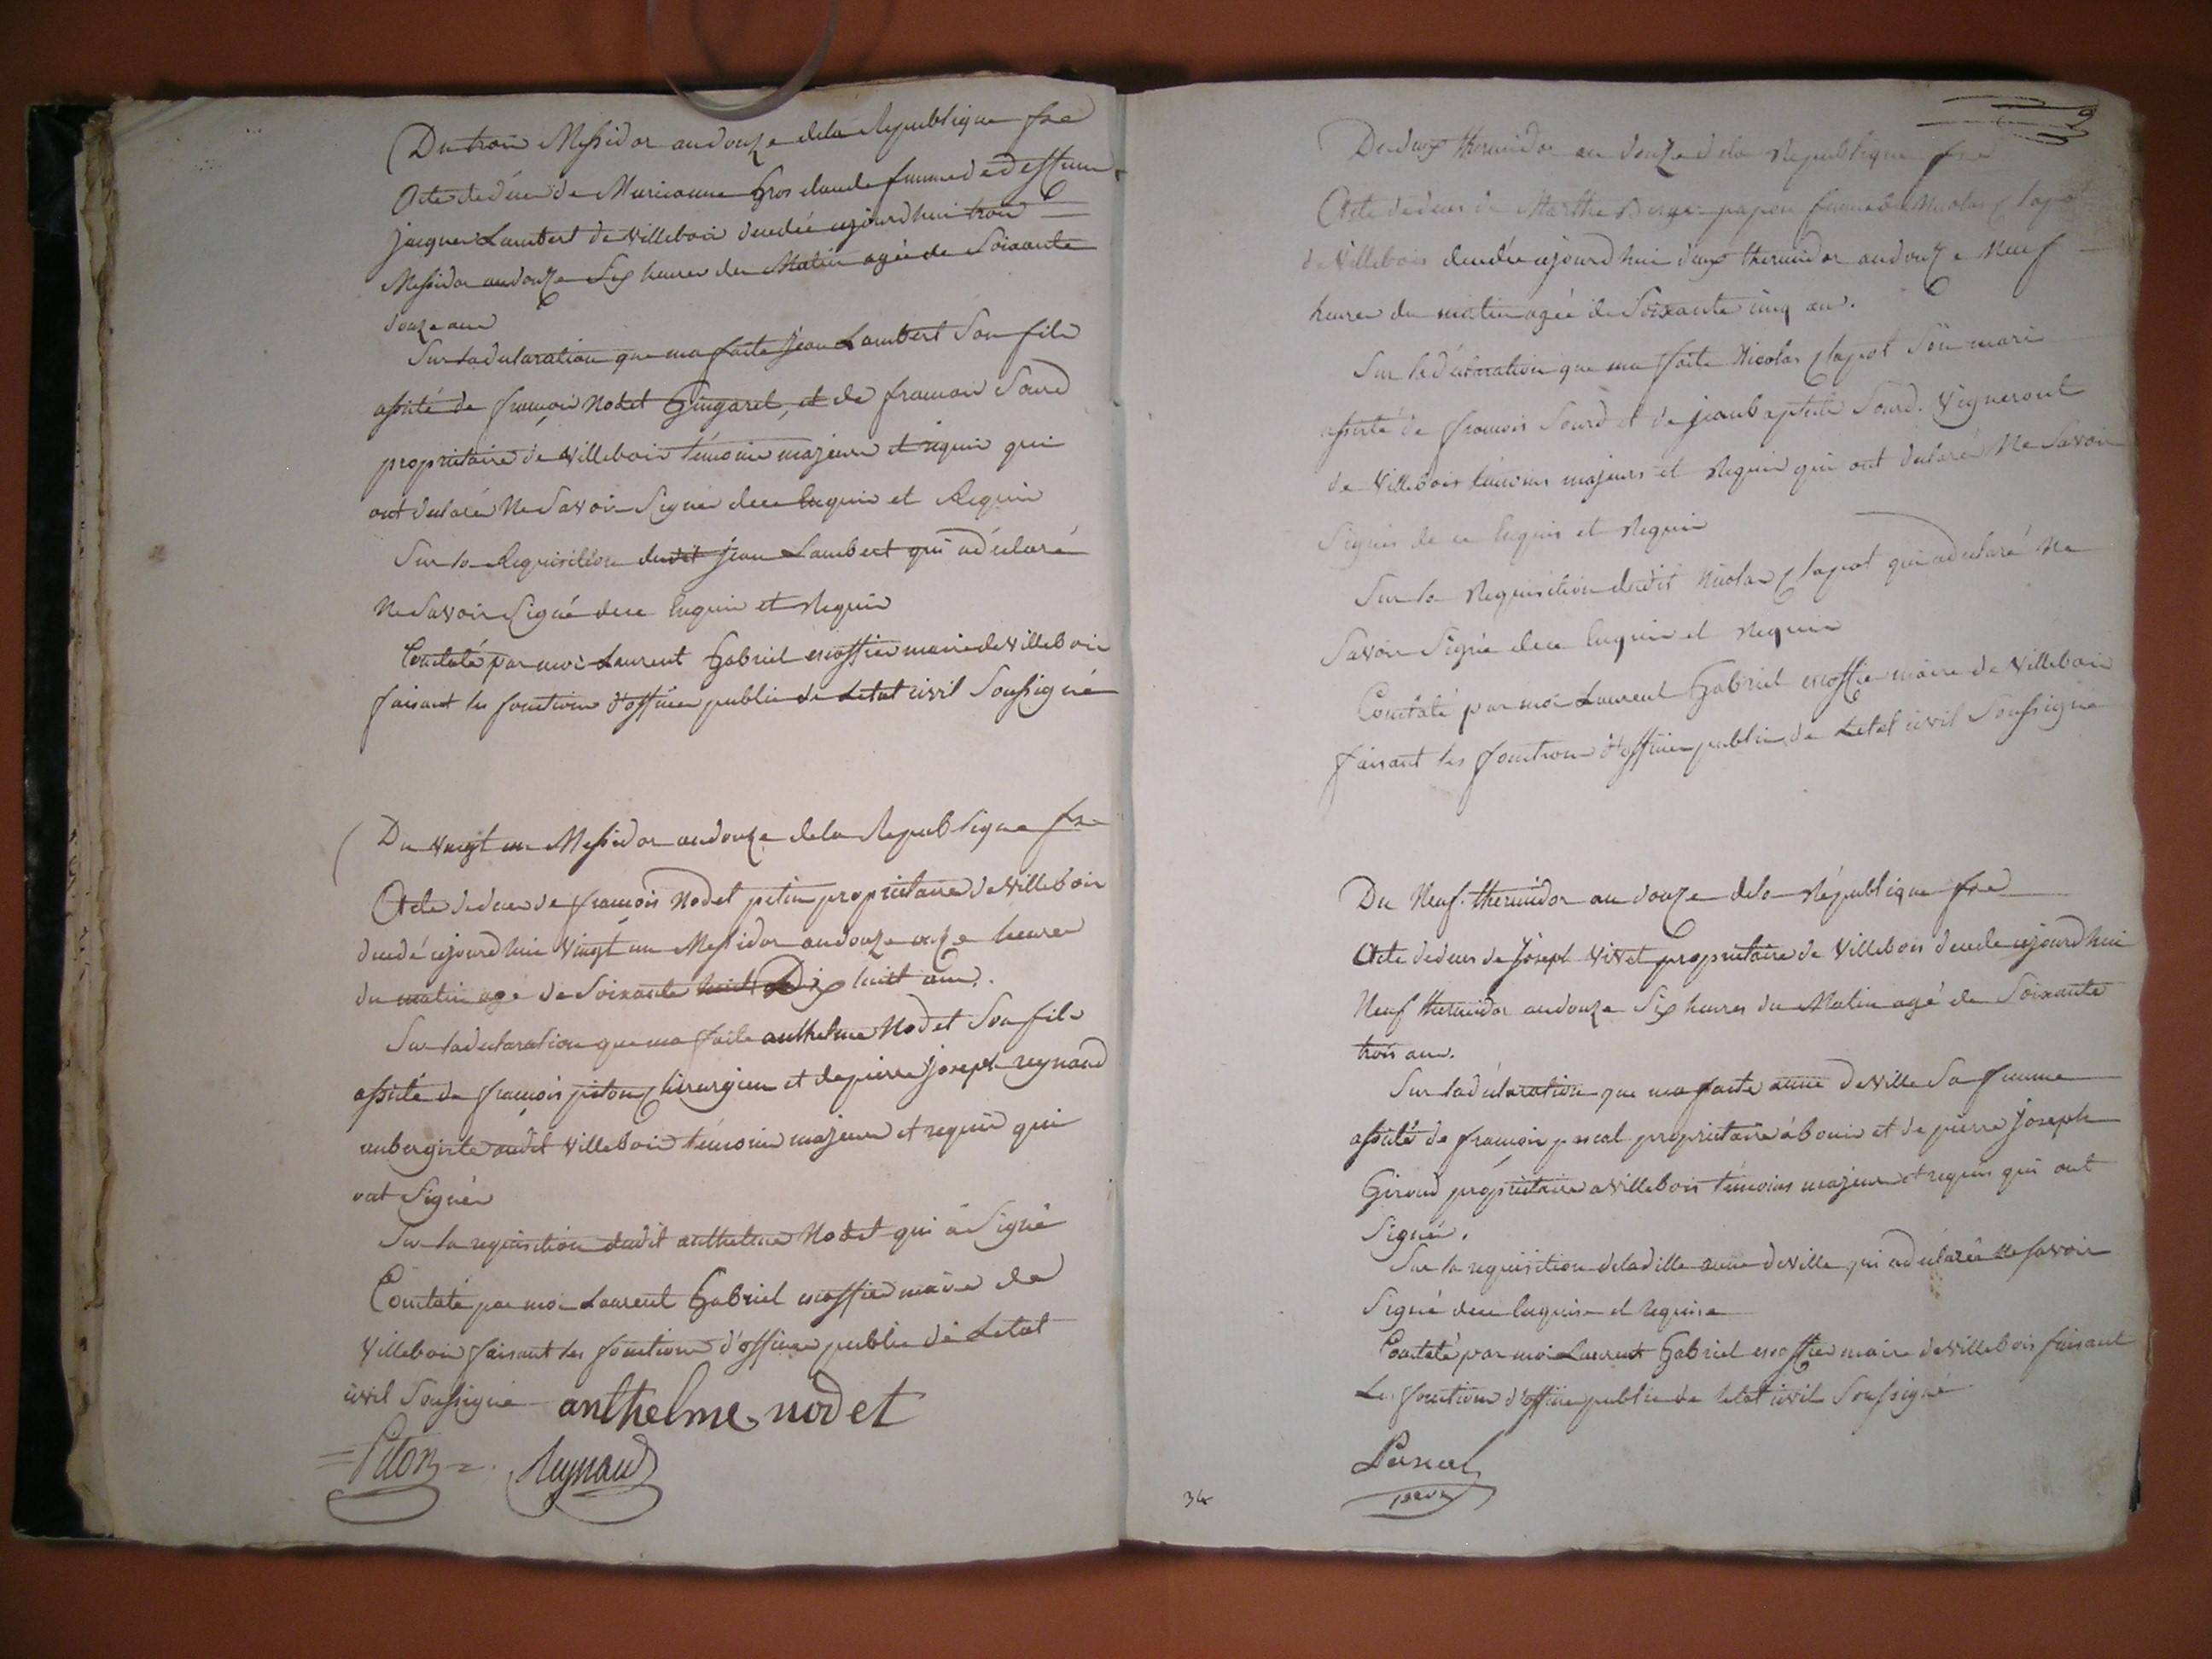 Du trois Messidor an douze dela Republique fse
Acte de décès de Marieanne Grosclaude femme de deffunt
jacques Lambert de villebois decedée cejourdhui trois
Messidor an douze Six heures du Matin agée de Soixante
douze ans
Sur la declaration que ma faite Jean Lambert Son fils
assisté de francois Nodet Gingarel, et de francois Sourd
propriétaire de villebois témoins majeurs et requis qui
ont declarés Ne Savoir Signer dece Enquis et Requis
Sur la Requisition dudit jean Lambert qui a déclaré
Ne Savoir Signé dece Enquis et Requis
Constaté par moi Laurent Gabriel escoffier maire de villebois
faisant les fonctions d'officier public de Letat civil Soussigné
Du vingt un Messidor an douze dela Republique fse
Acte de deces de francois Nodet petin propriétaire de villebois
decedé cejourdhui vingt un Messidor an douze onze heures
du matin agé de Soixante Dix huit ans.
Sur la declaration que ma faite anthelme Nodet Son fils
assisté de francois piton Chirurgien et de pierre joseph reynaud
aubergiste audit villebois témoins majeurs et requis qui
ont Signés
Sur la requisition dudit anthelme Nodet qui a Signé
Constaté par moi Laurent Gabriel escoffier maire de
Villebois faisant les fonctions d'officier public de Letat
civil Soussigné anthelme nodet
Piton Reynaud
9
Du deux thermidor an douze dela Republique fse
Acte de deces de Marthe Berger papon femme de Nicolas Chapot
de villebois decedée cejourdhui deux thermidor an douze Neuf
heures du matin agée de Soixante cinq ans.
Sur la déclaration que ma faite Nicolas Chapot Son mari
assisté de francois Sourd et de jean baptiste Sourd. Vigneront
de Villebois témoins majeurs et Requis qui ont declarés Ne Savoir
Signés de ce Enquis et Requis
Sur la Requisition dudit Nicolas Chapot qui a declaré Ne
Savoir Signé dece Enquis et Requis
Constaté par moi Laurent Gabriel escoffier maire de Villebois
faisant les fonctions d'officier public de Letat civil Soussigné
Du Neuf thermidor an douze dela République fse
Acte de deces de Joseph Vivet propriétaire de Villebois decedé cejourdhui
Neuf thermidor an douze Six heures du Matin agé de Soixante
trois ans.
Sur la déclaration que ma faite anne deville Sa femme
assisté de francois pascal propriétaire à bouis et de pierre Joseph
Giroud propriétaire a villebois témoins majeurs et requis qui ont
Signés.
Sur la requisition de ladille anne deville qui a déclarée ne Savoir
Signé dece Enquise et requise
Constaté par moi Laurent Gabriel escoffier maire de villebois faisant
Les fonctions d'officier public de letat civil Soussigné
Pascal
34